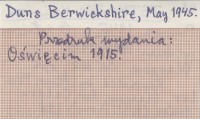 Duns Berwickshire, May 1945.
Przedruk wydania:
Oświęcim 1915.